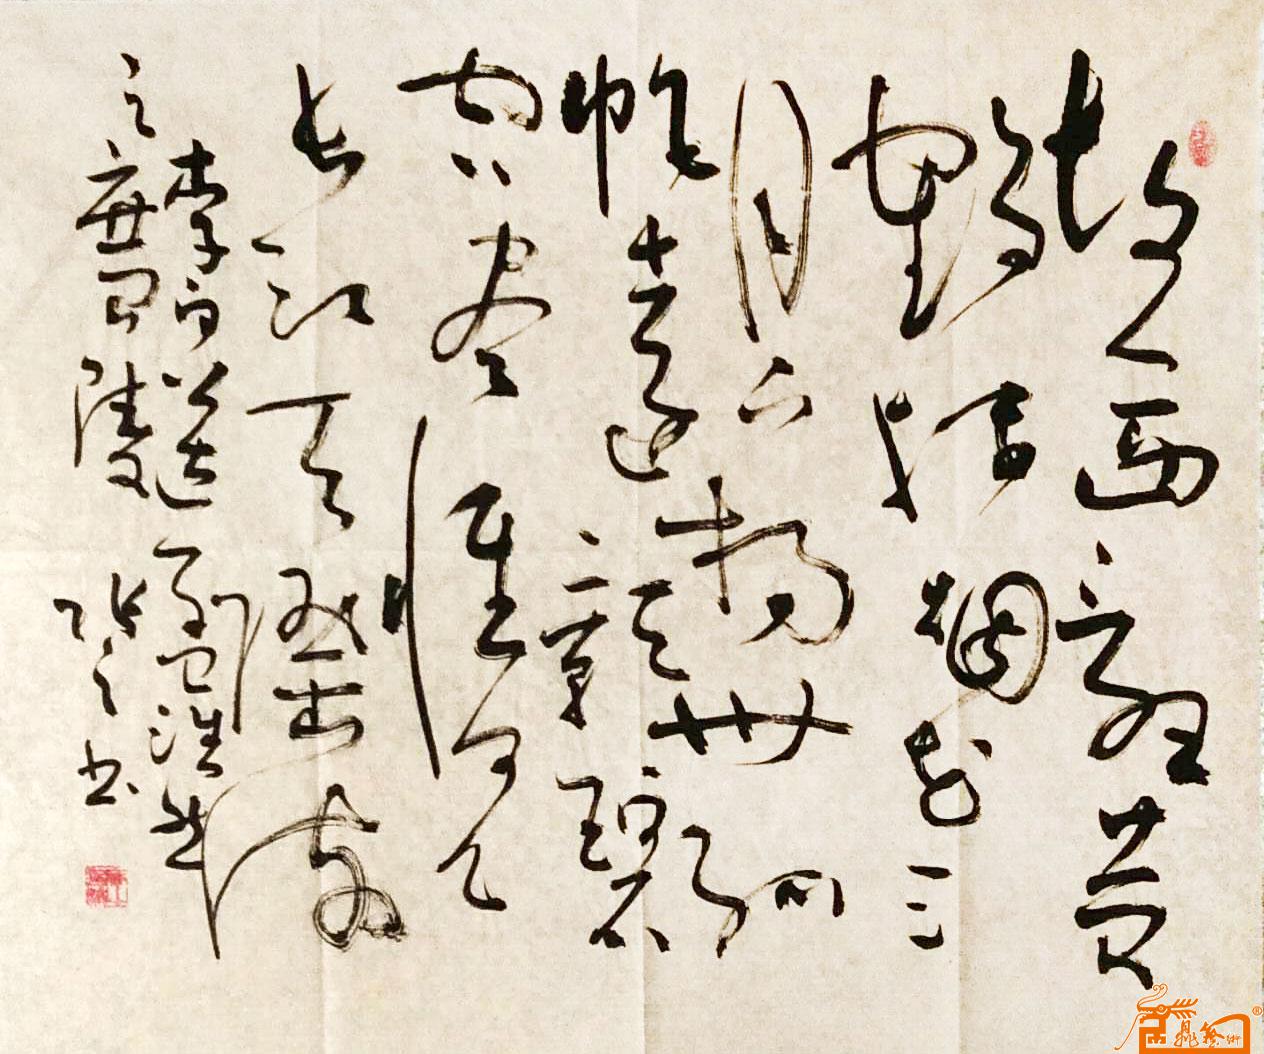 故人西辞黄
鹤楼烟花三
月下扬州孤
帆遠影碧
空尽惟见
长江天際流
李白送孟浩然
之廣陵 之书